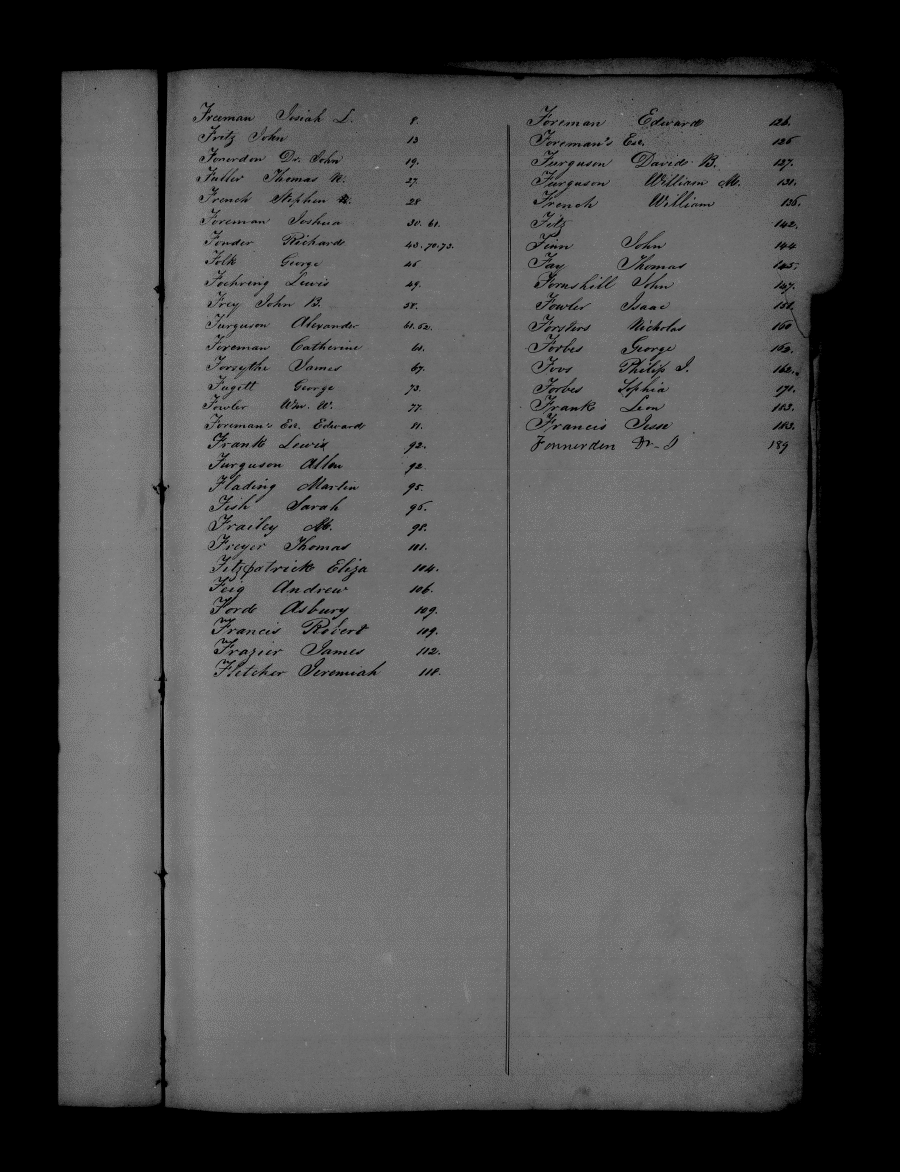 Freeman Josiah L. 8.
Fritz John 13
Fonerdon Dr. John 19.
Fuller Thomas N. 27.
French Stephen 28
Foreman Joshua 30. 61.
Fonder Richard 43. 70. 73.
Folk George 46
Foehring Lewis 49.
Frey John B. 58.
Furguson Alexander 61. 62.
Foreman Catherine 61.
Forsythe James 67.
Fugitt George 73.
Fowler Wm. W. 77.
Foreman's Est. Edward 81.
Frank Lewis 92.
Furguson Allen 92
Flading Martin 95.
Fish Sarah 96.
Frailey M. 98.
Freyer Thomas 101.
Fitzpatrick Eliza 104.
Feig Andrew 106.
Ford Asbury 109.
Francis Robert 109.
Frazier James 112.
Fletcher Jeremiah 118.
Foreman Edward 126.
Foreman's Est. 126
Furguson David B. 127.
Furguson William M. 131.
French William 136.
Fitz 142.
Finn John 144
Fay Thomas 145.
Fornshill John 147.
Fowler Isaac 151.
Forsters Nicholas 160
Forbes George 162.
Foos Philip J. 162.
Forbes Sophia 171.
Frank Leon 183.
Francis Jesse 183.
Fonnerden Dr 189